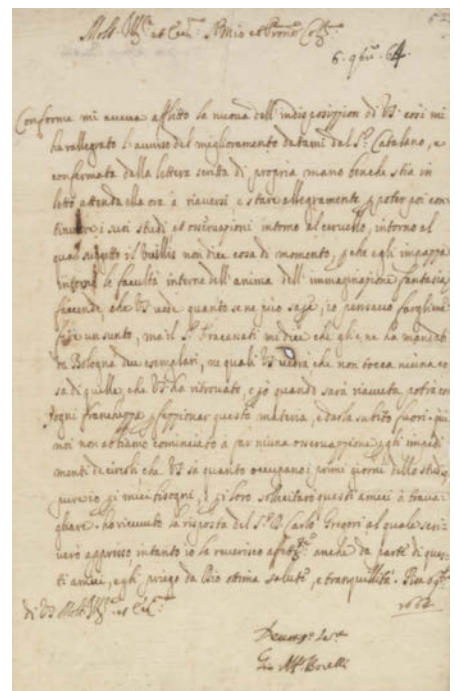 Molt' Ill.re et Ecc.te S.r Mio et Pron.e Col.mo
6. 9bre. 64.
Conforme mi aveva afflitto la nuova dell'indisposizion di VS. così mi
ha rallegrato l'avviso del miglioramento datami dal S.r Catalano, e
confermata dalla lettera scritta di propria mano benche stia in
letto attenda ella ora à riaversi e stare allegramente p poter poi con
tinuare i suoi studi et osservazioni intorno al cervello, intorno al
qual suggetto il Vuillis non dice cosa di momento, p che egli
intorno le facultà interne dell'anima dell'immaginazione fantasia
facende che VS vede quanto se ne può sapere, io pensavo farglime
fare un sunto, ma il S.r Fracassati mi dice che gli ne ha mandati
da Bologna due esemplari, ne quali VS vedrà che non tocca niuna co
sa di quelle che VS ha ritrovato, e quando sarà riavuta potrà con
ogni franchezza p questa materia, e darla subito fuori. qui
noi non abbiamo cominciato à far niuna osservazione p gli impedi
menti che VS sa quanto occupano i primi giorni dello studio,
i miei bisogni, loro sollecitare questi amici à trava
gliare. ho ricevuto la risposta del S.r D. Carlo Gregori al quale scri
verò appresso intanto io la reverisco anche da parte di ques
ti amici, e gli prego da Dio ottima salute, e tranquillità. Pisa 6 9bre
1664
di VS Molt' Ill.re et Ecc.te
Gio Alf.o Borelli